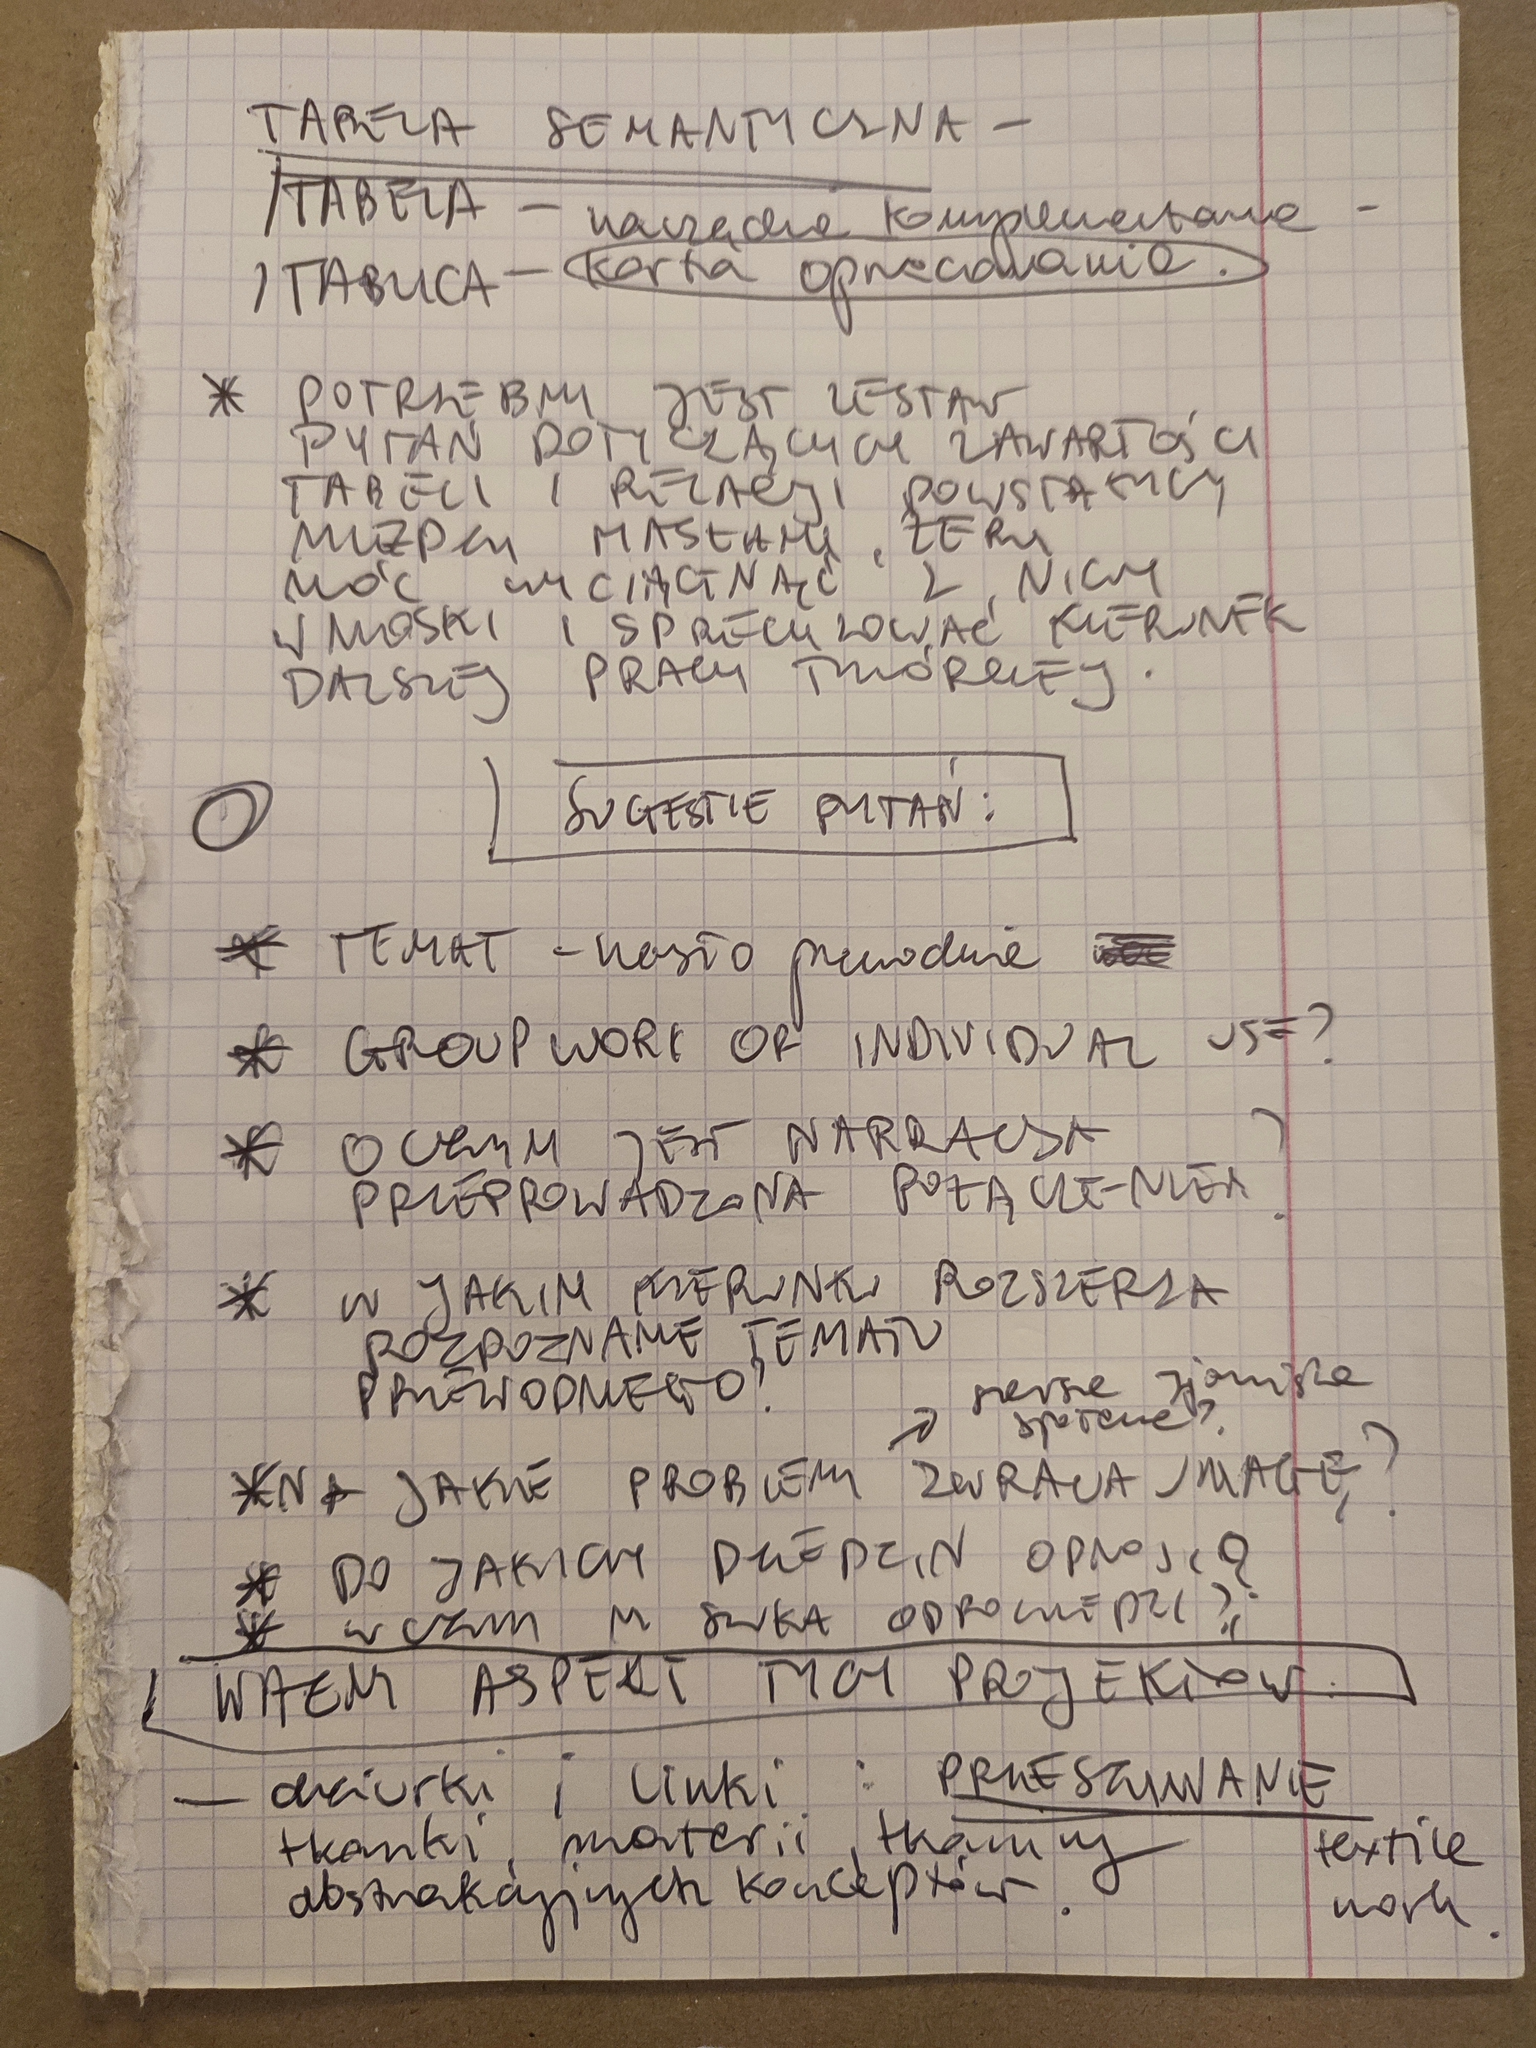 TABELA SEMANTYCZNA -
/TABELA - narzędzie komplementarne -
/TABLICA - karta opracowania.
* POTRZEBNY JEST ZESTAW
PYTAŃ DOTYCZĄCYCH ZAWARTOŚCI
TABELI I RELACJI POWSTAŁYCH
MIĘDZY HASŁAMI, ŻEBY
MÓC WYCIĄGNĄĆ Z NICH
WNIOSKI I SPRECYZOWAĆ KIERUNEK
DALSZEJ PRACY TWÓRCZEJ.
SUGESTIE PYTAŃ:
* TEMAT - hasło przewodnie
* GROUP WORK OR INDIVIDUAL USE?
* O CZYM JEST NARRACJA
PRZEPROWADZONA POŁĄCZE-NIEM?
* W JAKIM KIERUNKU ROZSZERZA
ROZPOZNANIE TEMATU
PRZEWODNIEGO?
szersze zjawiska
społeczne?
* NA JAKIE PROBLEMY ZWRACA UWAGĘ?
* DO JAKICH DZIEDZIN ODNOSI?
* W CZYM SZUKA ODPOWIEDZI?
WAŻNY ASPEKT TYCH PROJEKTÓW.
- dziurki i linki : PRZESZYWANIE
tkanki, materii, tkaniny textile
abstrakcyjnych konceptów. work.